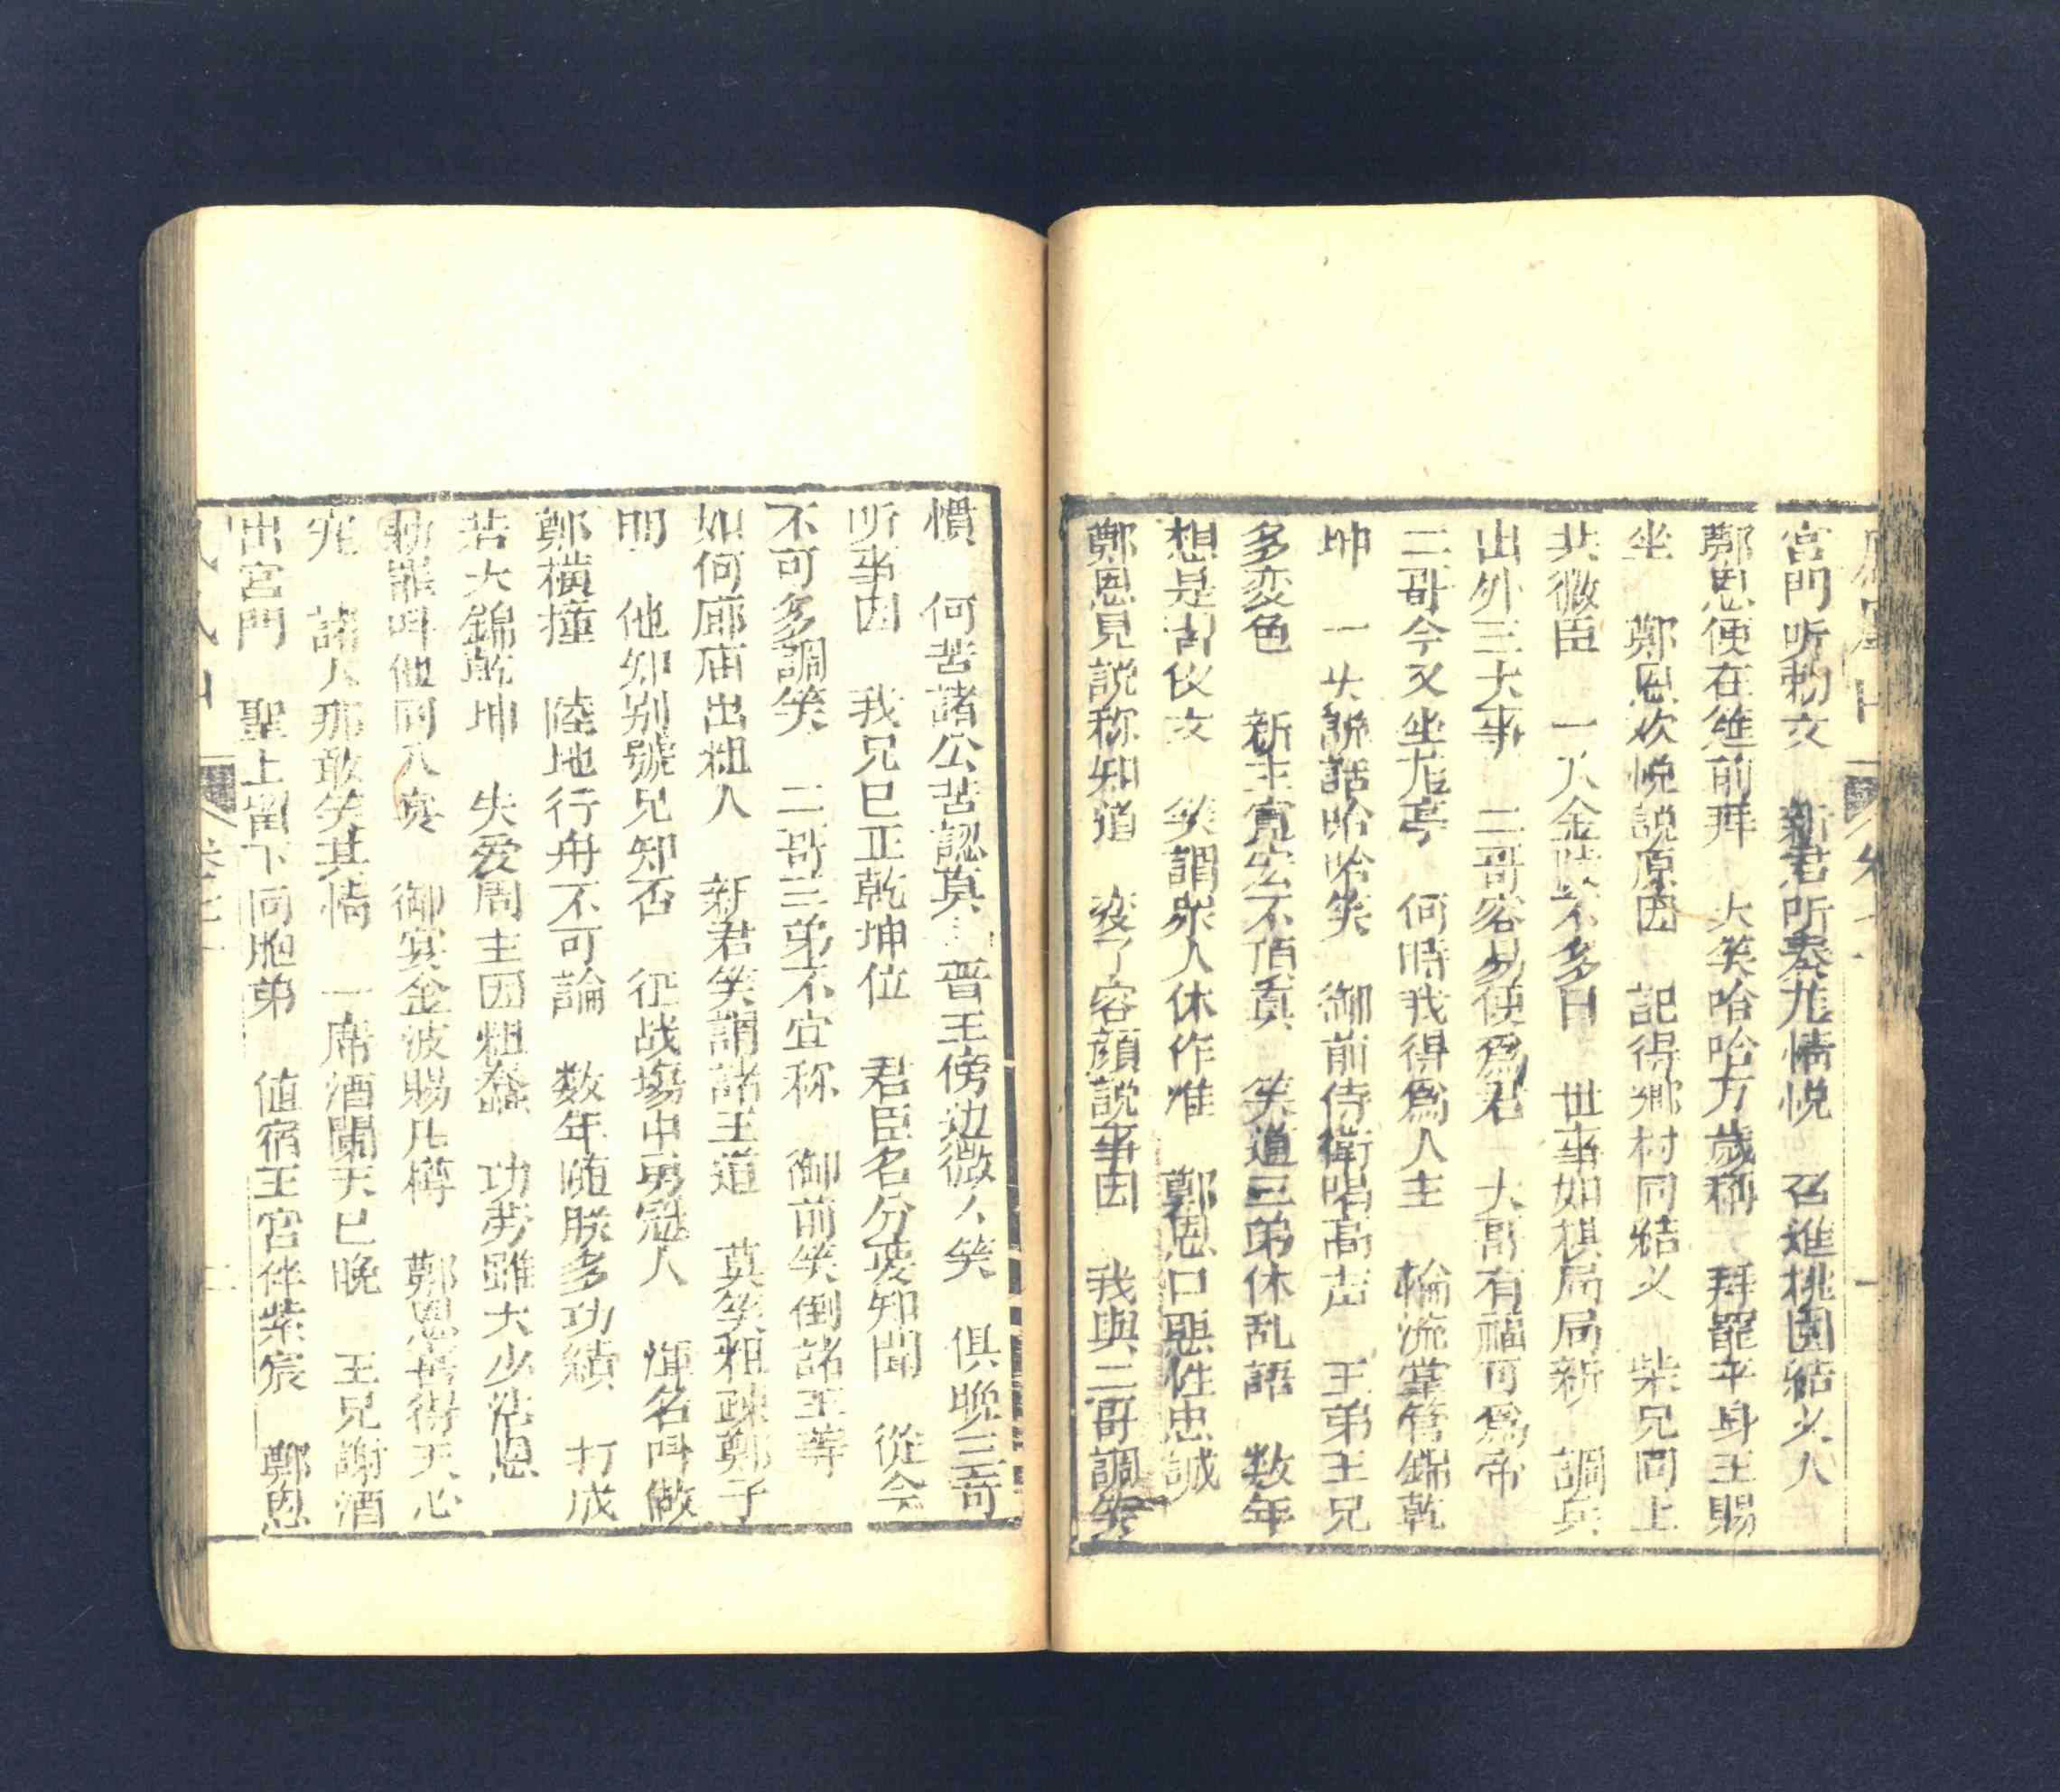 宮門听勅文　新君所奏尨情悦　召進桃園結义人
鄭恩便在筵前拜　大笑哈哈万歲称　拜罷平身王賜
坐　鄭恩欢悦説原因　記得鄉村同結义　柴兄同上
共微臣　一人金陵不多日　世事如棋局局新　調兵
出外三大事　二哥容易使為君　大哥有福可為帝
二哥今又坐尨亭　何時我得為人主　輪流掌管錦乾
坤　一共説話哈哈笑　御前侍衛唱高声　王弟王兄
多変色　新主寛宏不頂真　笑道三弟休乱語　数年
想是古伩文　笑謂眾人休作准　鄭恩口惡性忠誠
鄭恩見説称知道　変了容顔説事因　我與二哥調笑
慣　何苦諸公苦認真　晋王傍边微人笑　俱晚三奇
听事因　我兄已正乾坤位　君臣名分要知聞　從今
不可多調笑　二哥三弟不宜称　御前笑倒諸王等
如何廊庙出粗人　新君笑謂諸王道　莫笑粗疎鄭子
明　他却别號兄知否　征战塲中勇冠人　渾名呌做
鄭橫撞　陸地行舟不可論　数年随朕多功績　打成
若大錦乾坤　失爱周主因粗蠢　功劳雖大少沾恩
勅罷呌他同入席　御賓金波賜几樽　鄭恩喜得天心
寵　諸人那敢笑其情　一席酒闌天已晚　王兄謝酒
出宮門　聖上留下同胞弟　值宿王宮伴紫宸　鄭恩